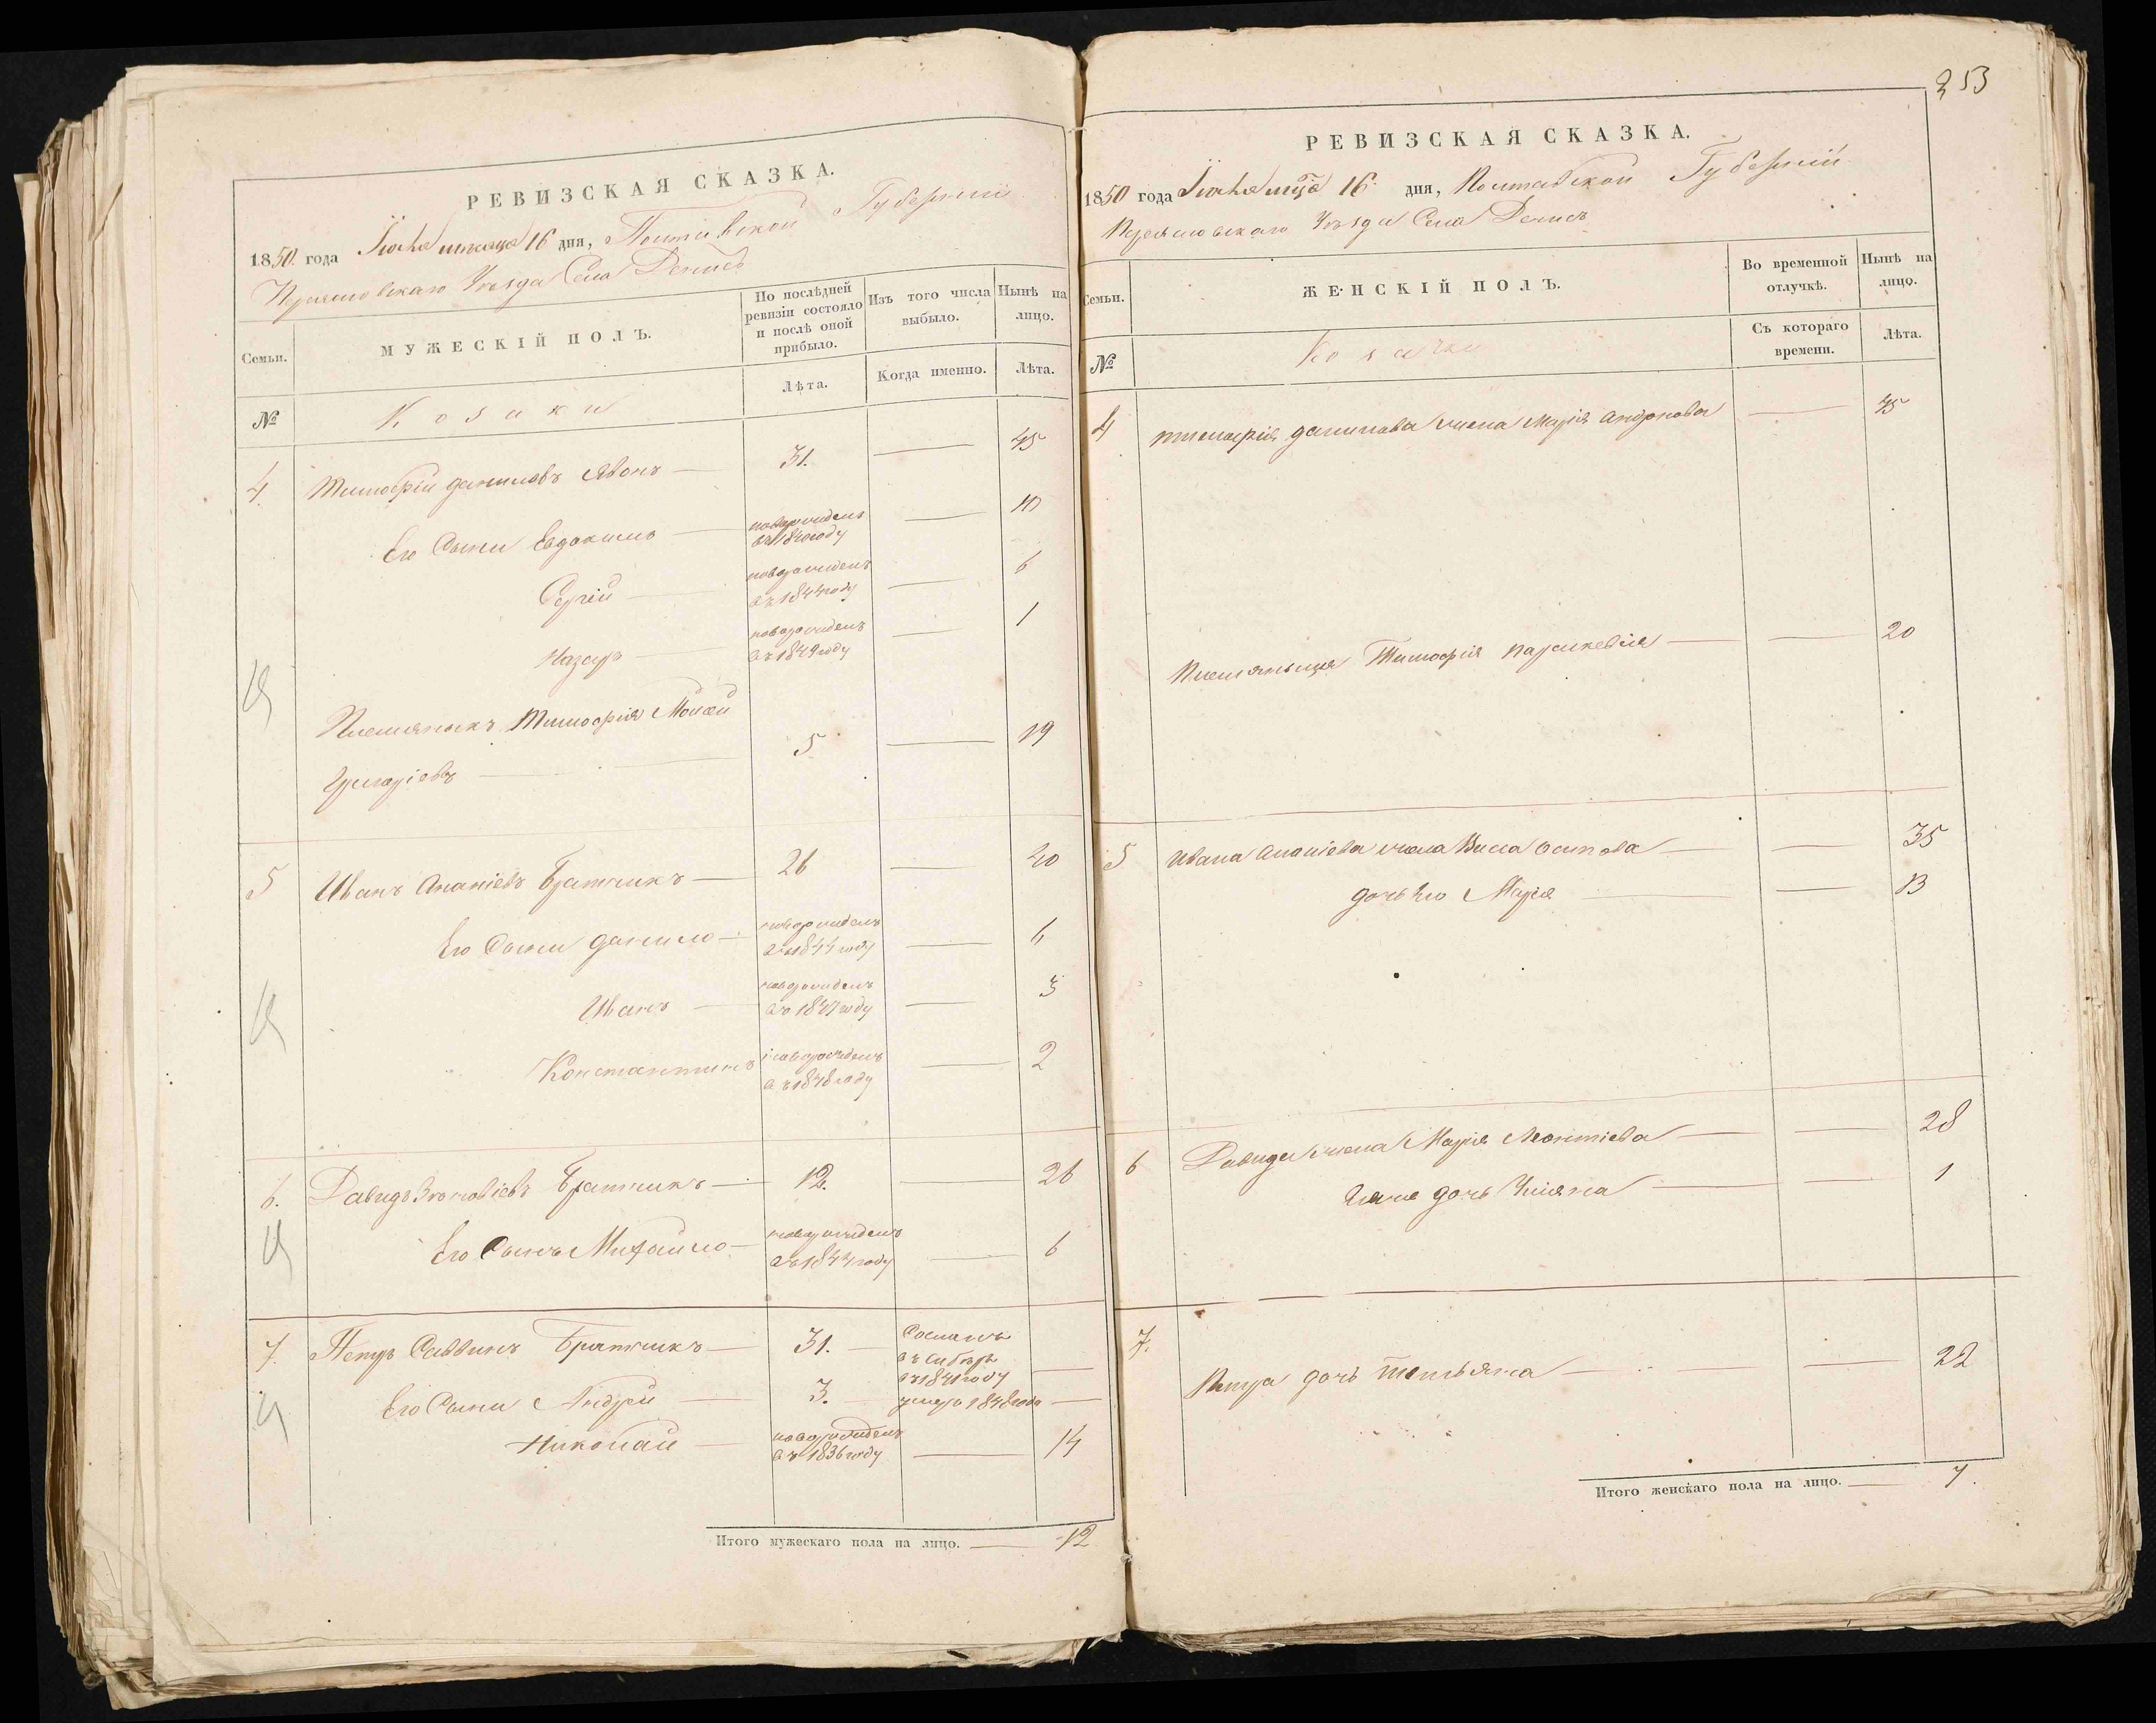 РЕВИЗСКАЯ СКАЗКА.
1850 года Iюня месяца 16 дня, Полтавской Губернiи
Переясловскаго Уезда Села Денисъ
Семьи.
МУЖЕСКIЙ ПОЛЪ.
По послѣдней ревизiи состояло и послѣ оной прибыло.
Изъ того числа выбыло.
Нынѣ на лицо.
№
Козаки
Лѣта.
Когда именно.
Лѣта.
4 Тимофiй Даниловъ Явонъ — 31. — 45
Его Сыни Евдокимъ — новорожденъ въ 1840 году — 10
Сергiй — новорожденъ въ 1844 году — 6
Назаръ — новорожденъ въ 1849 году — 1
Племяныкъ Тимофiя Мойсей
Григорiевъ — 5 — 19
5 Иванъ Ананiевъ Братчикъ — 26 — 40
Его Сыни Данило — новорожденъ въ 1844 году — 6
Иванъ — новорожденъ въ 1847 году — 3
Константинъ новорожденъ въ 1848 году — 2
6. Давидъ Зѣновiевъ Братчикъ — 12. — 26
Его Сынъ Михайло — новорожденъ въ 1844 году — 6
7. Петръ Саввинъ Братчикъ — 31. — Сосланъ въ Сибирь въ 1841 году —
Его Сыни Андрей — 3. — умеръ 1848 года —
Николай — новорожденъ въ 1836 году — 14
Итого мужескаго пола на лицо. — 12
253
РЕВИЗСКАЯ СКАЗКА.
1850 года Iюня мця 16 дня, Полтавской Губернiи
Переясловскаго Уезда Села Денисъ
Семьи.
ЖЕНСКIЙ ПОЛЪ.
Во временной отлучкѣ.
Нынѣ на лицо.
№
Козачки
Съ котораго времени.
Лѣта.
4 Тимофiя Данилова жена Марiя Андрѣова — 45
Племяныца Тимофiя Параскевiя — — 20
5 Ивана Ананiева жена Васса Осипова — — 35
дочь его Марiя — — 13
6 Давида жена Марiя Леонтiева — — 28
дочь Улiяна — — 1
7. Петра дочь Татьяна — — 22
Итого женскаго пола на лицо. — 7.